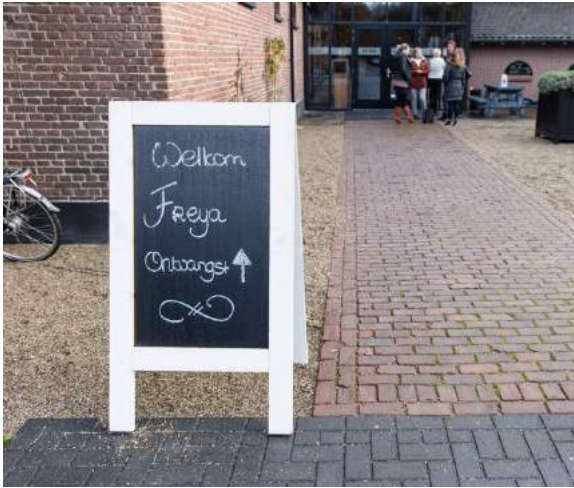 Welkom
Freya
Ontvangst